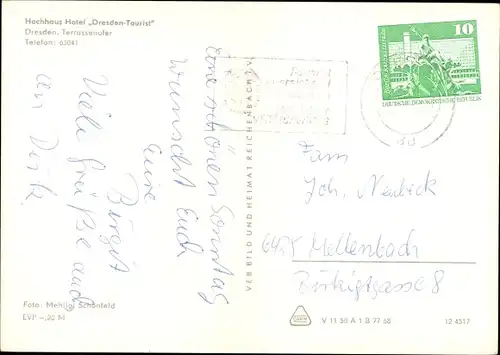 Hochhaus Hotel „Dresden-Tourist"
Dresden, Terrassenufer
Telefon: 63041
Einen schönen Sonntag
wünscht Euch
Eure
Birgit
Viele Grüße auch
an Dirk
Foto: Mehlig, Schönfeld
EVP -,20 M
VEB BILD UND HEIMAT REICHENBACH I. V.
10
DEUTSCHE DEMOKRATISCHE REPUBLIK
Fam
Joh. Neubeck
6428 Mellenbach
Birkigtgasse 8
V 11 50 A 1 B 77 68
12 4517